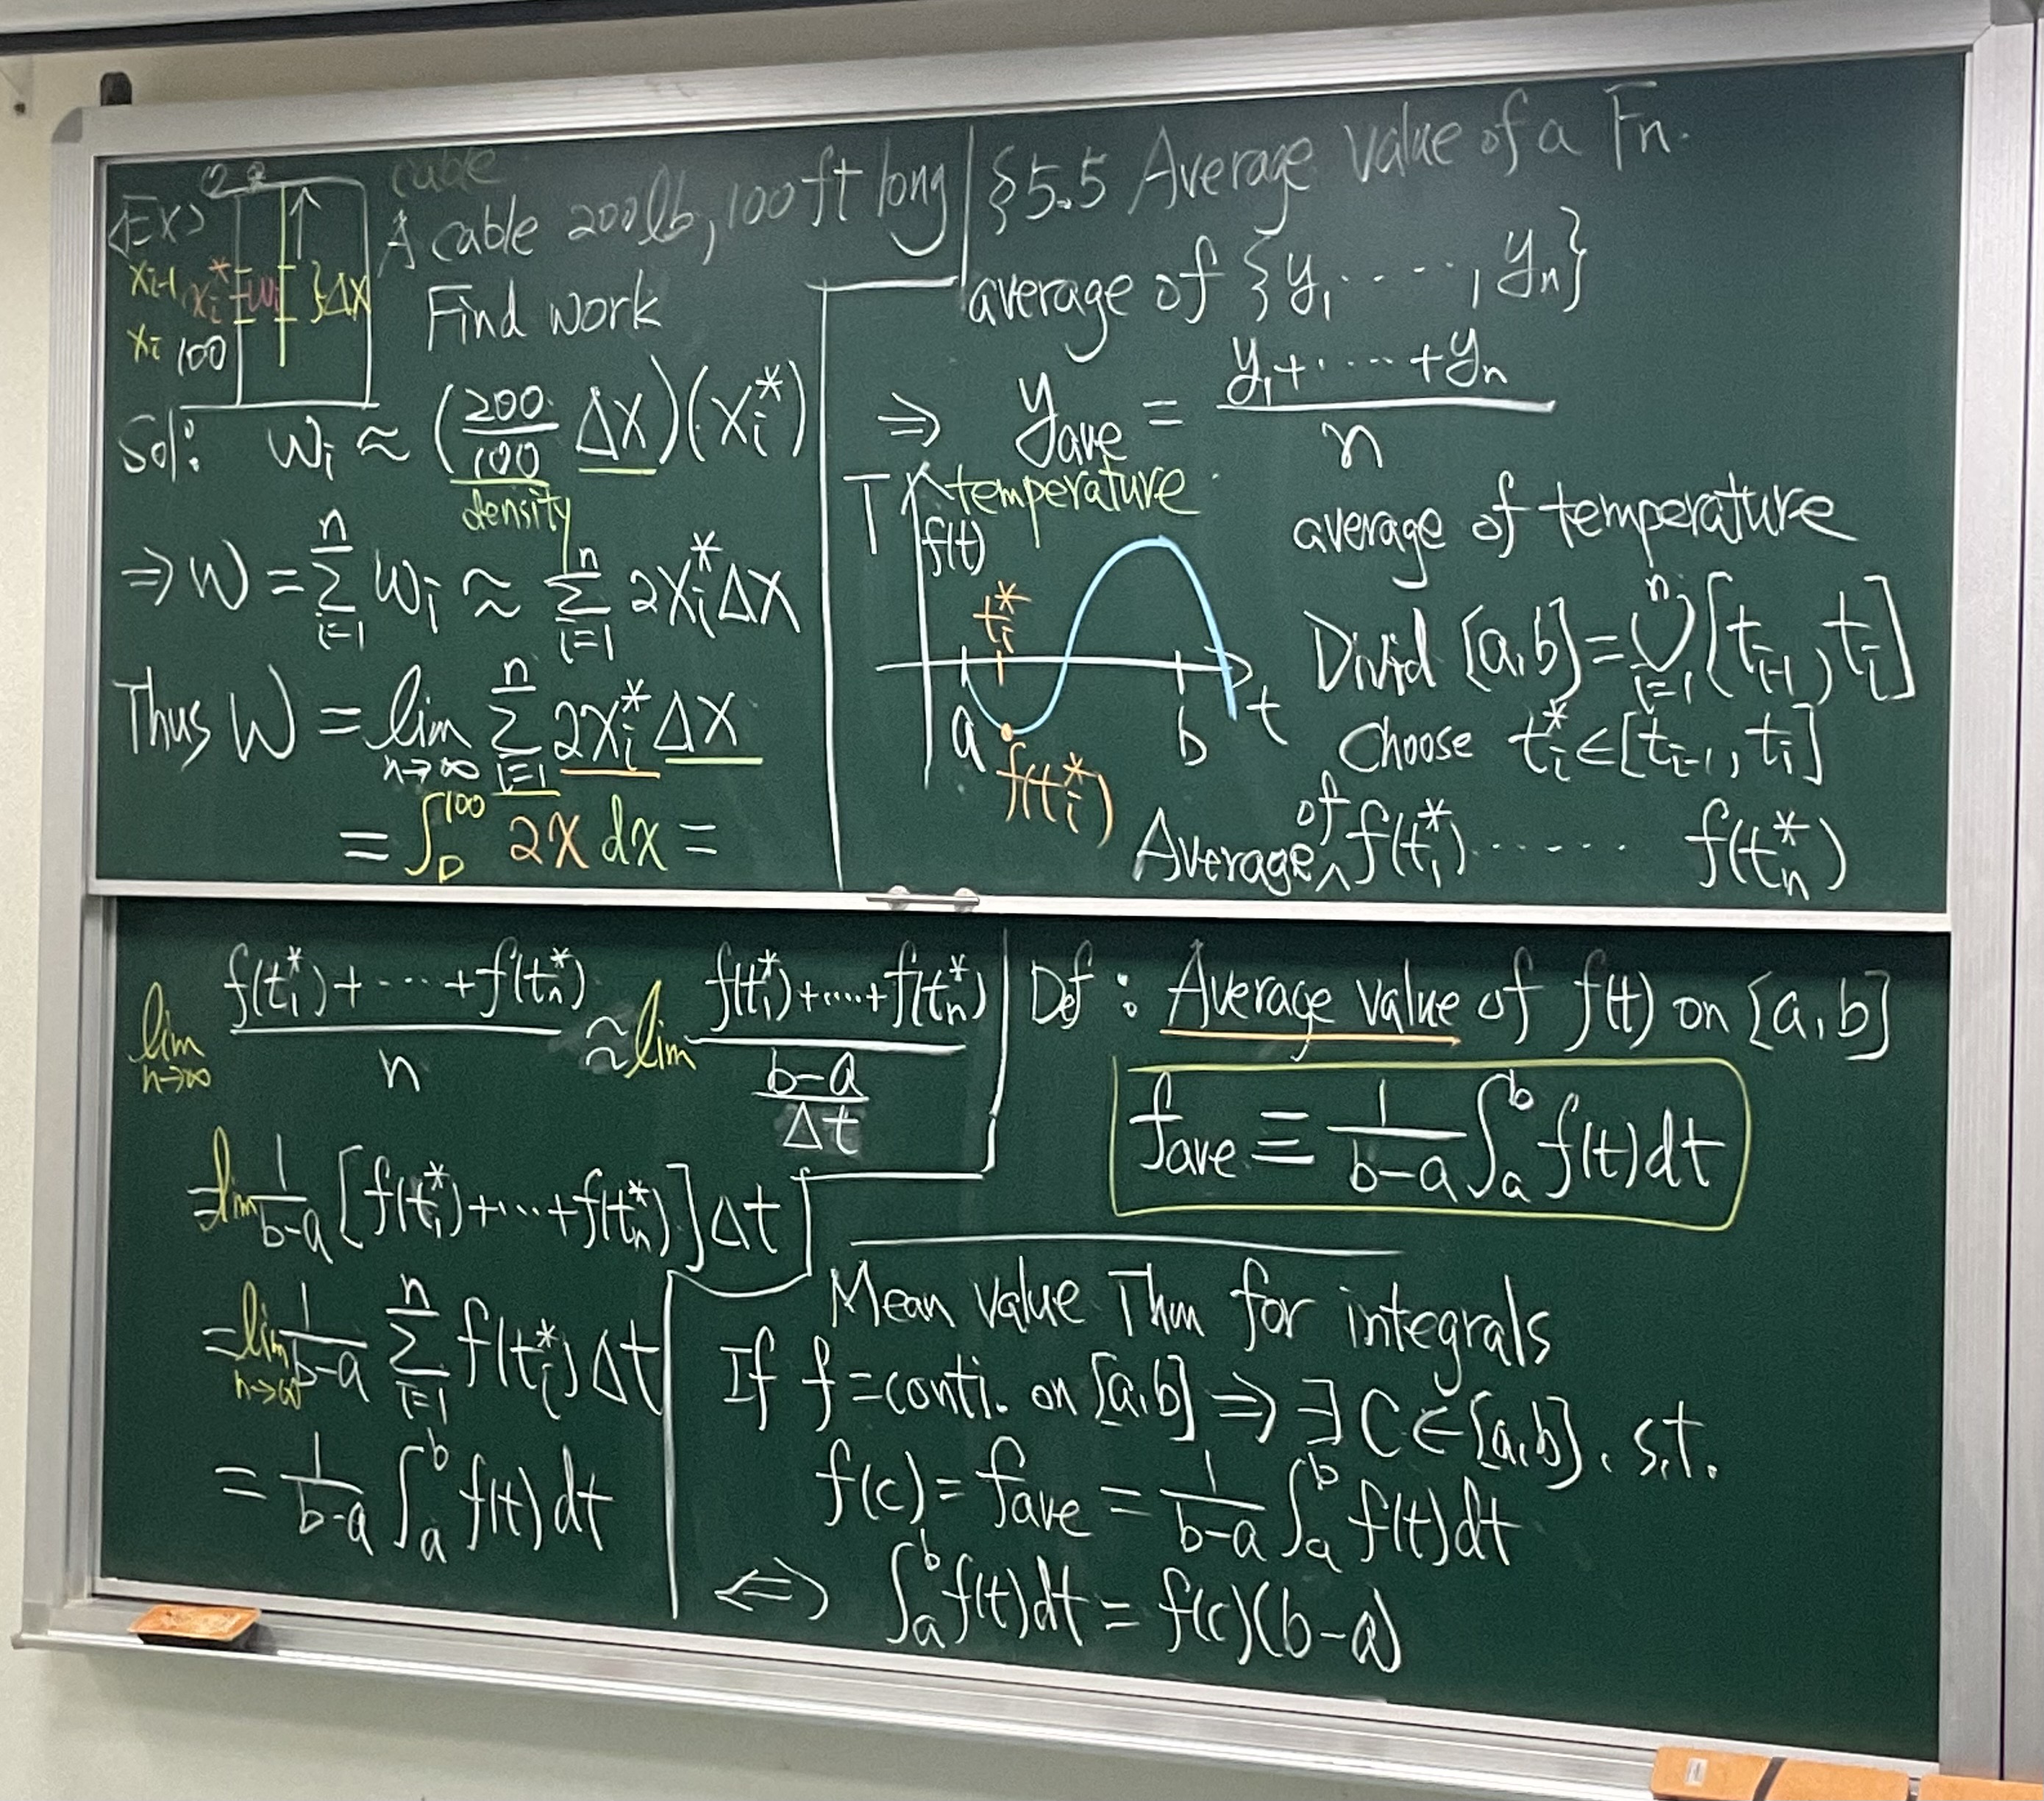 <Ex> cable
A cable 200lb, 100ft long
Find work
xi-1 xi* wi }Δx
xi 100
Sol: Wi ≈ (200/100 Δx)(xi*)
density
⇒ W = Σ_{i=1}^{n} Wi ≈ Σ_{i=1}^{n} 2xi*Δx
Thus W = lim_{n→∞} Σ_{i=1}^{n} 2xi* Δx
= ∫_0^100 2x dx =
§5.5 Average value of a Fn.
average of {y1, ....., yn}
⇒ yave = (y1+.....+yn)/n
T temperature
f(t)
ti*
a b t
f(ti*)
average of temperature
Divid [a,b] = ∪_{i=1}^{n} [ti-1, ti]
Choose ti* ∈ [ti-1, ti]
Average of f(t1*) ....... f(tn*)
lim_{n→∞} (f(t1*)+ ... +f(tn*))/n ≈ lim (f(t1*)+....+f(tn*))/((b-a)/Δt)
= lim 1/(b-a) [f(t1*)+...+f(tn*)] Δt
= lim_{n→∞} 1/(b-a) Σ_{i=1}^{n} f(ti*) Δt
= 1/(b-a) ∫_a^b f(t) dt
Def : Average value of f(t) on [a,b]
fave ≡ 1/(b-a) ∫_a^b f(t)dt
Mean value Thm for integrals
If f = conti. on [a,b] ⇒ ∃ C ∈ [a,b], s.t.
f(c) = fave = 1/(b-a) ∫_a^b f(t)dt
⇔ ∫_a^b f(t)dt = f(c)(b-a)